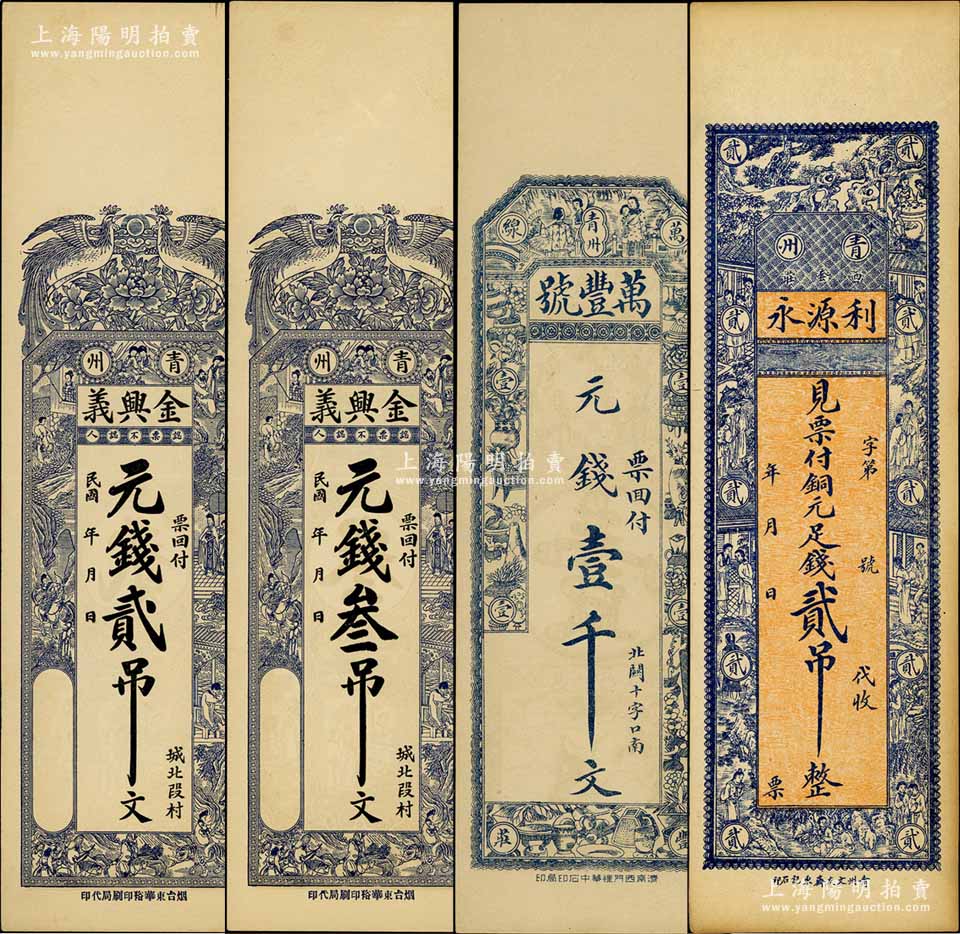 上海陽明拍賣
www.yangmingauction.com
青州
金興義
認票不認人
票回付
元錢貳吊文
民國 年 月 日
城北段村
烟台東華裕印刷局代印
上海陽明拍賣
www.yangmingauction.com
青州
金興義
認票不認人
票回付
元錢叁吊文
民國 年 月 日
城北段村
烟台東華裕印刷局代印
青州
萬
線
萬豐號
壹
壹
壹
壹
票回付
元錢壹千文
北關十字口南
莊
濟南西門裡華中石印局印
貳
貳
青州
利源永
貳
貳
貳
貳
貳
貳
貳
貳
字第 號
見票付銅元足錢貳吊整
年 月 日
代收
票
上海陽明拍賣
www.yangmingauction.com
上海陽明拍賣
www.yangmingauction.com